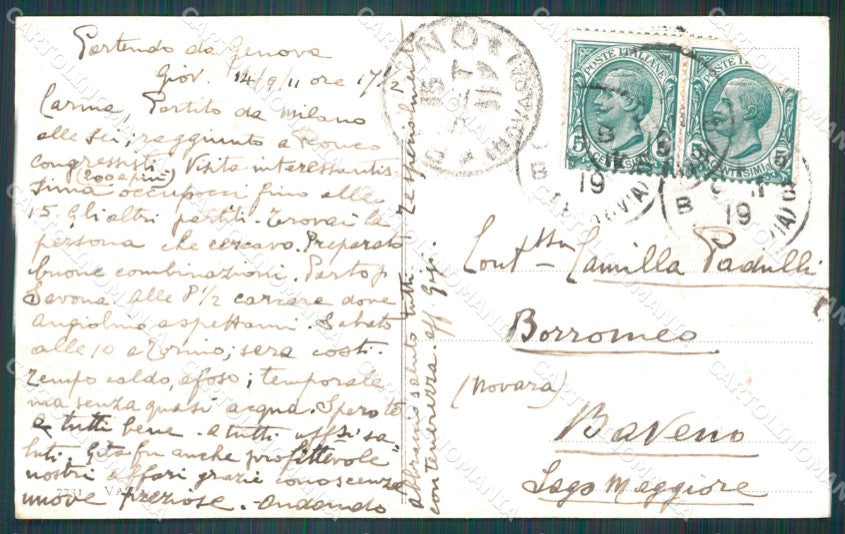 Partendo da Genova
Giov. 14/9/11 ore 17½
Carina, Partito da Milano
alle sei; raggiunto a Ronco
congressisti. Visita interessantis-
sima (200 e più) occupocci fino alle
15. Gli altri partiti. Trovai la
persona che cercavo. Preparato
buone combinazioni. Parto p.
Savona. Alle 8½ carcare dove
Angiolino aspettami. Sabato
alle 10 a Torino; sera costì.
Tempo caldo, afoso; temporale
ma senza quasi acqua. Spero te
e tutti bene. A tutti aff.si sa-
luti. Gita fu anche profittevole
nostri affari grazie conoscenze
nuove preziose. Andando
abbraccio saluto tutti. Te specialmente
con tenerezza. aff Gigi.
POSTE ITALIANE
POSTE ITALIANE
Cont.ssa Camilla Padulli
Borromeo
(Novara)
Baveno
Lago Maggiore
CARTOLINOMANIA